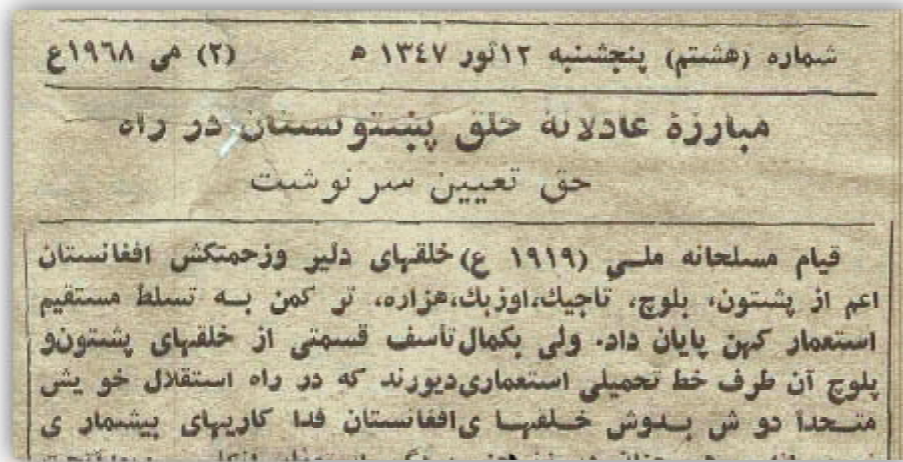 شماره (هشتم) پنجشنبه ۱۲ ثور ۱۳٤۷ ه (۲) می ۱۹٦۸ع
مبارزهٔ عادلانهٔ خلق پښتونستان در راه
حق تعیین سرنوشت
قیام مسلحانه ملی (۱۹۱۹ ع) خلقهای دلیر وزحمتکش افغانستان
اعم از پشتون، بلوچ، تاجیك، اوزبك، هزاره، تر کمن به تسلط مستقیم
استعمار کهن پایان داد. ولی بکمال تأسف قسمتی از خلقهای پشتون و
بلوچ آن طرف خط تحمیلی استعماری دیورند که در راه استقلال خو یش
متحداً دو ش بدوش خلقها ی افغانستان فدا کاریهای بیشمار ی